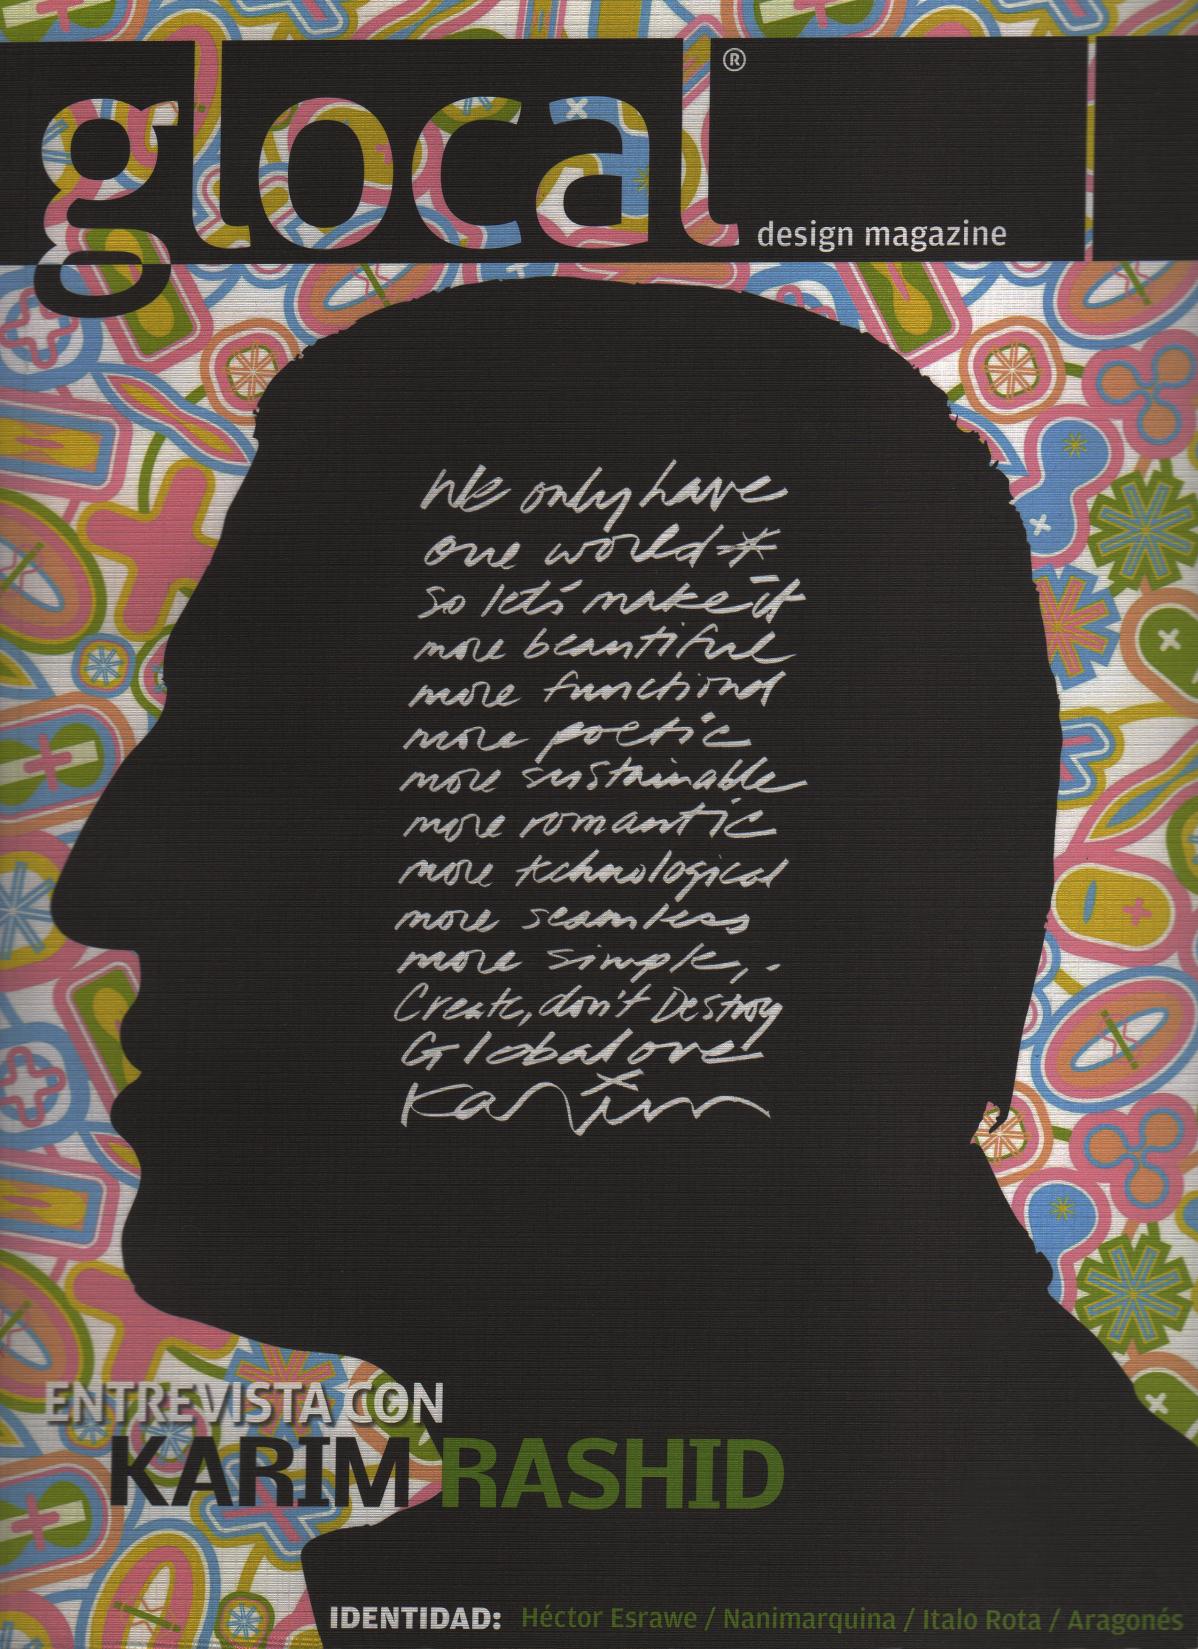 glocal®
design magazine
We only have
one world*
so let's make it
more beautiful
more functional
more poetic
more sustainable
more romantic
more technological
more seamless
more simple,.
Create, don't Destroy
Globalove!
Karim
ENTREVISTA CON
KARIM RASHID
IDENTIDAD: Héctor Esrawe / Nanimarquina / Italo Rota / Aragonés